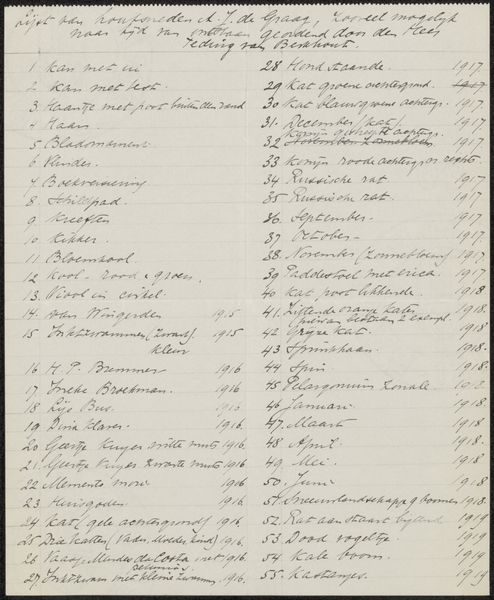 Lijst van houtsneden v. J. de Graag, zooveel mogelijk
naar tijd van ontstaan geordend door den Heer
Teding van Berkhout.
1 Kan met ui
2 Kan met
3 Haantje met poot buiten den rand
4 Haan
5 Bladornament
6 Vlinder
7 Boekversiering
8 Schildpad
9 Kreeften
10 Kikker
11 Bloemkool
12 Kool - rood & groen
13 Viool in cirkel
14 van Wijngerden 1915
15 Inktzwammen (Zwart) 1915
klein
16 H. P. Bremmer 1916
17 Ineke Broekman. 1916
18 Lijs Bus.
19 Dirk Klaver. 1916
20 Geertje Kuyer witte muts 1916.
21 Geertje Kuyer zwarte muts 1916.
22 Memento mori 1916
23 Huisgoden 1916.
24 Kat (gele achtergrond) 1916.
25 Drie Katten (Vader, Moeder, Kind) 1916.
26 Mendes da Costa 1916.
27 Inktzwam met kleine zwammen 1916.
28 Hond staande. 1917
29 Kat groene achtergrond. 1917
30 Kat blauwgroene achtergr. 1917
31. December (Kat) 1917
konijn achtergr.
32 November Zonnebloem 1917
33 konijn roode achtergr. or rechts. 1917
34 Russische rat 1917
35 Russische rat. 1917
36 September. 1917
37 October - 1917
38. November (Zonnebloem) 1917
39 Paddestoel met erica. 1917
40 Kat poot likkende. 1918
41. Zittende oranje kater 1918.
42 Grijze Kat. 1918
43 Sprinkhaan 1918.
44 Spin 1918.
45 Pelargonium Zonale.
46 Januari 1918.
47. Maart 1918.
48 April. 1918
49 Mei. 1918
50. Juni 1918
51. Sneeuwlandschap 9 boomen 1918.
52. Rat aan staart bijtend 1919
53 Dood vogeltje 1919
54 Kale boom. 1919
55. Kastanjes. 1919